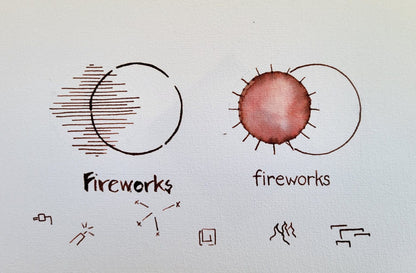 Fireworks
fireworks